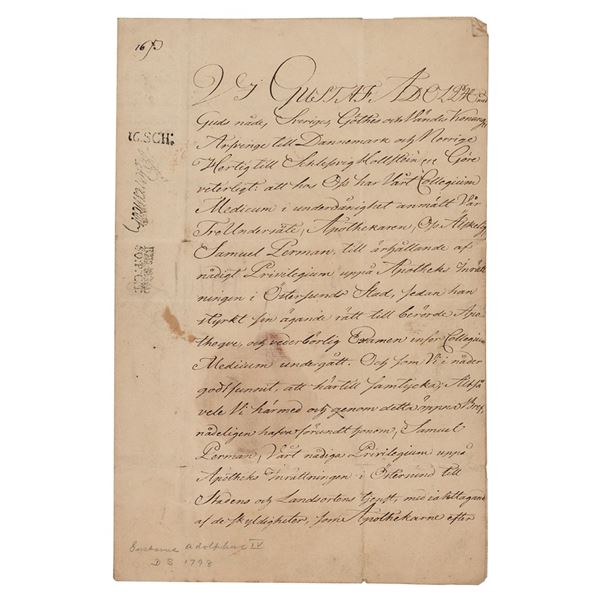 167
VJ GUSTAF ADOLPH med
Guds nåde, Sveriges, Göthes och Vändes Konung,
Arfvinge till Dannemark och Norrige
Hertig till Schlesvig Hollstein &c. Göre
veterligt, att hos Oss har Vårt Collegium
Medicum i underdånighet anmält Vår
Tro Undersåte, Apothekaren, Oss Älskelig
Samuel Perman, till ärhållande af
nådigt Privilegium uppå Apotheks Inrätt-
ningen i Östersunds Stad, sedan han
styrkt sin ägande rätt till berörde Apo-
theque, och vederbörlig Examen inför Collegium
Medicum undergått. Och som Vi i nåder
godt funnit, att härtill samtycka; Altså
vele Vi härmed och genom detta öppna Bref
nådeligen hafva förundt honom, Samuel
Perman, Vårt nådiga Privilegium uppå
Apotheks Inrättningen i Östersund till
Stadens och Landsortens tjenst, med iakttagande
af de skyldigheter, som Apothekarne efter
C. SCH:
Gustavus Adolphus IV
D S 1798